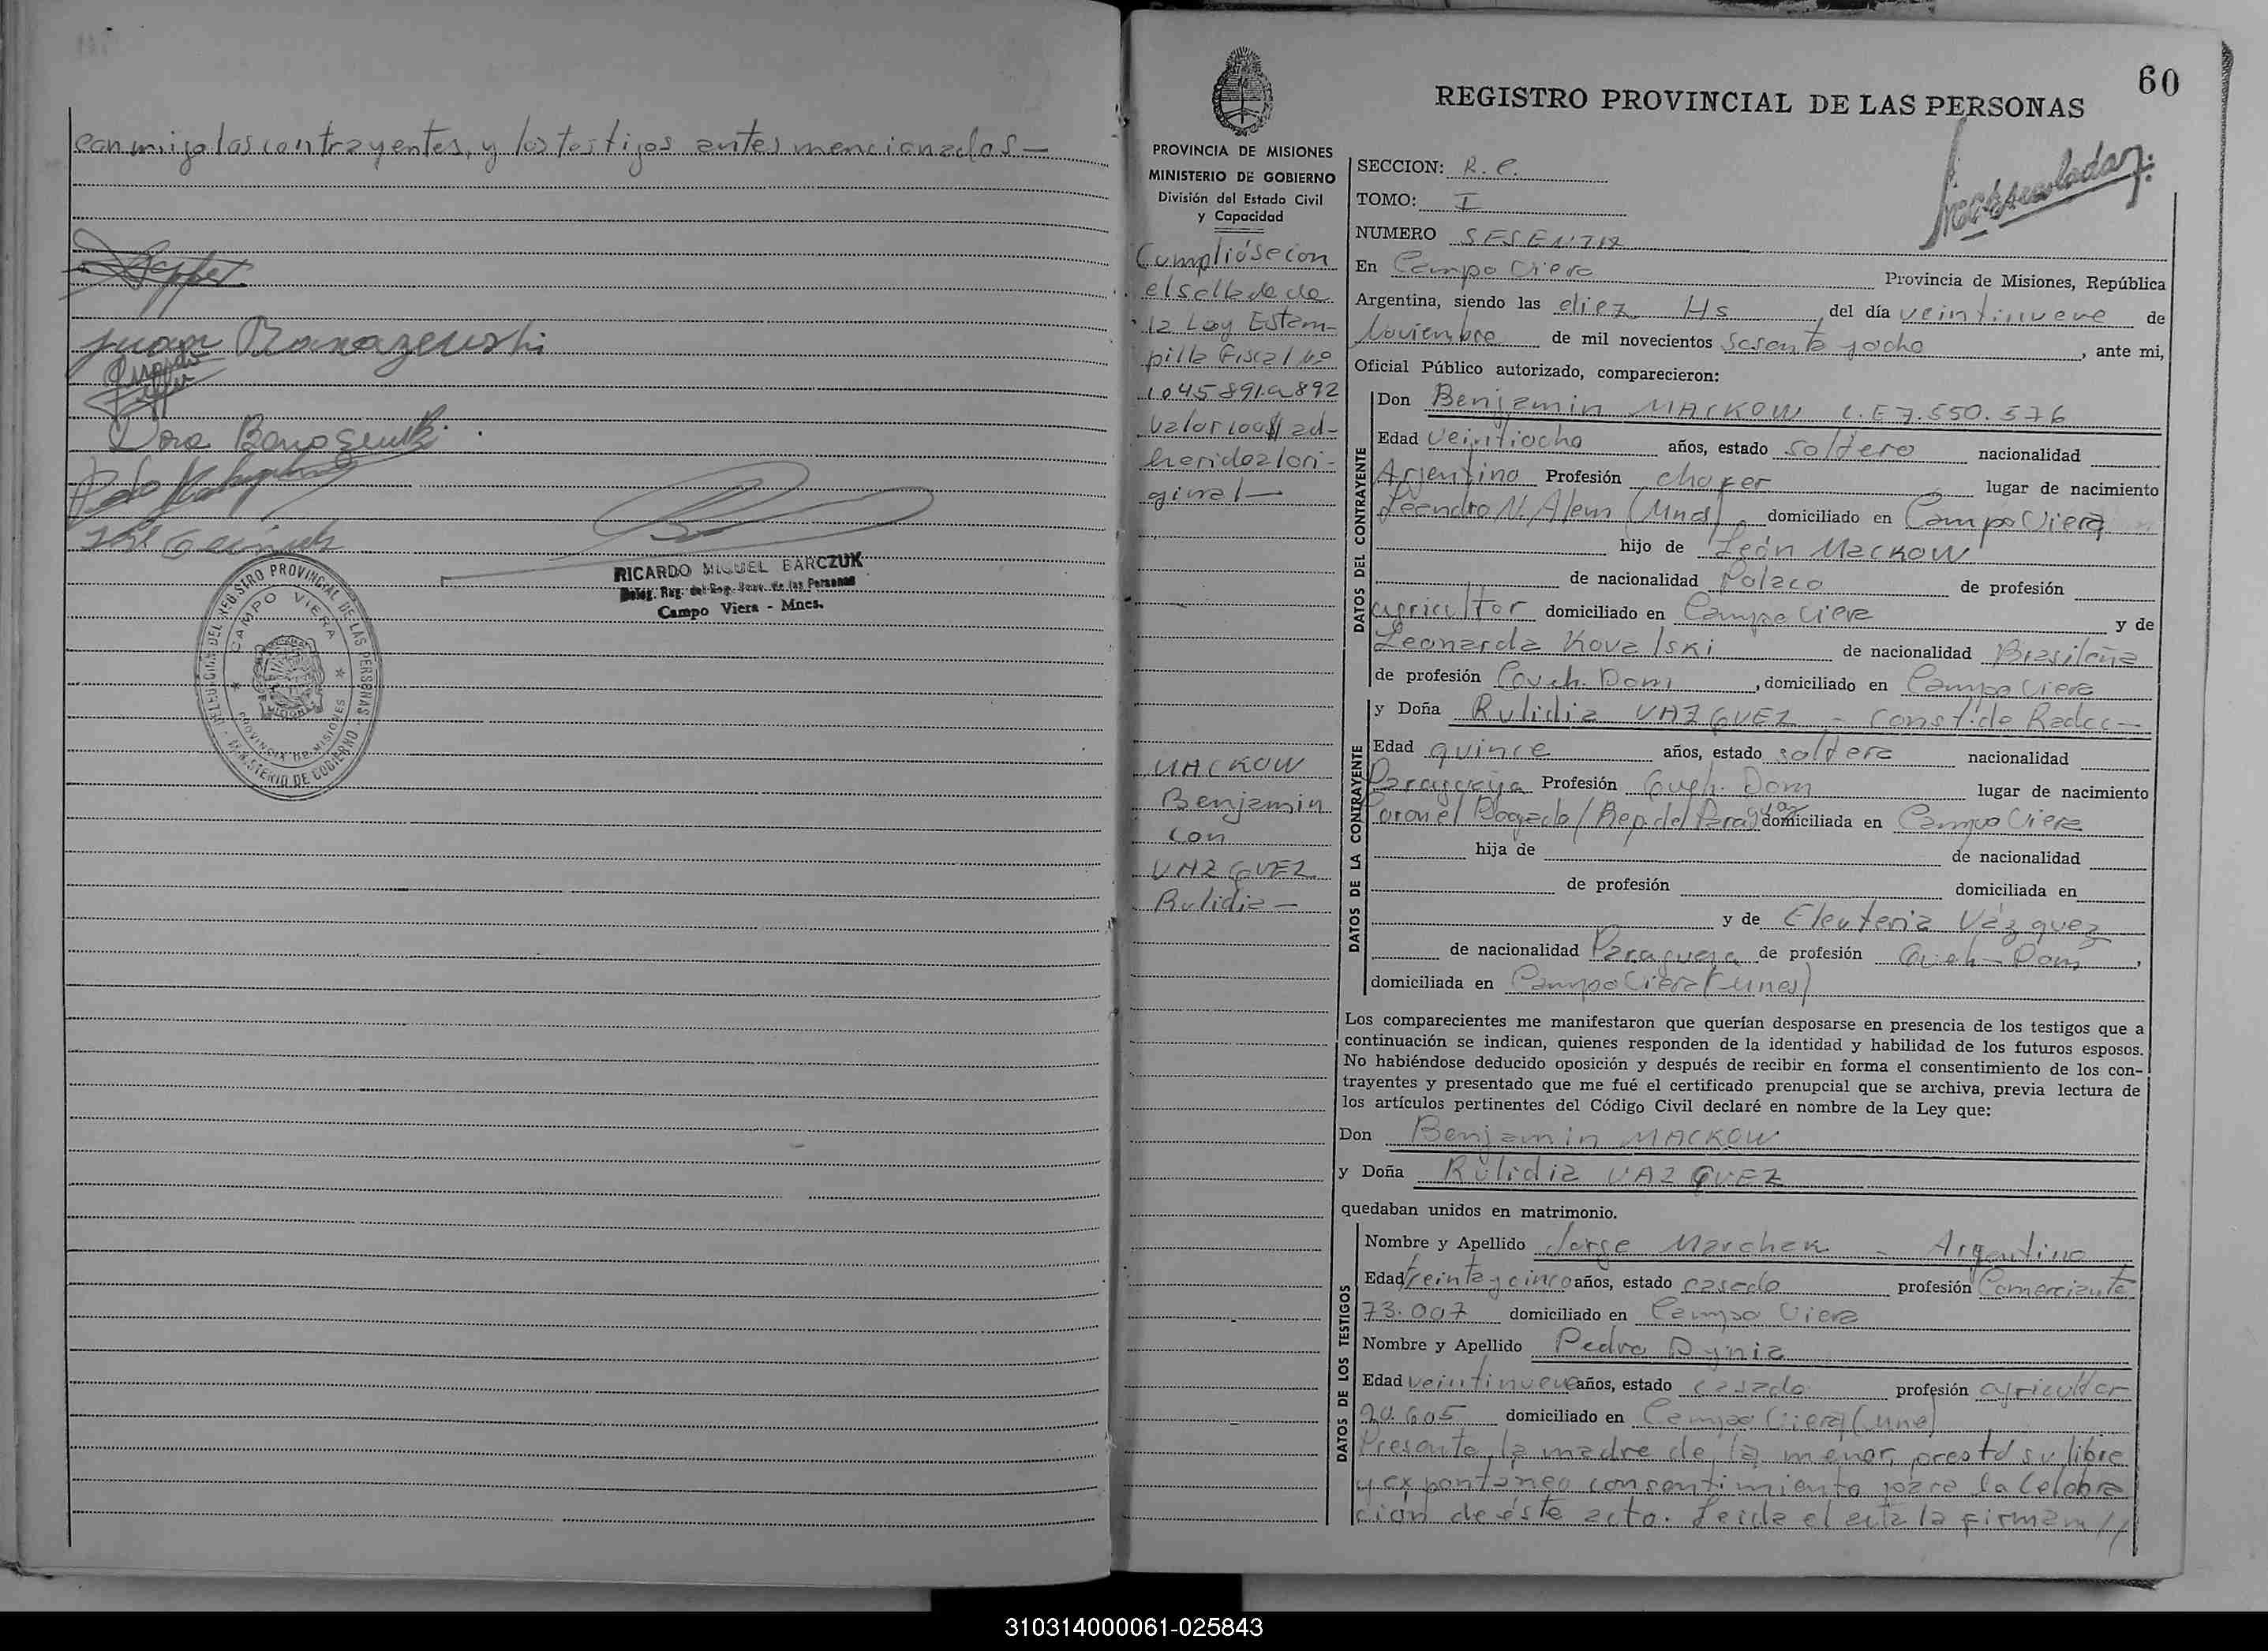 conmigo los contrayentes, y los testigos antes mencionados—
Juan Banazewski
RICARDO MIGUEL BARCZUK
Campo Viera - Mnes.
DELEGACION DEL REGISTRO PROVINCIAL DE LAS PERSONAS
CAMPO VIERA
PROVINCIA DE MISIONES
MINISTERIO DE GOBIERNO
60
REGISTRO PROVINCIAL DE LAS PERSONAS
PROVINCIA DE MISIONES
MINISTERIO DE GOBIERNO
División del Estado Civil
y Capacidad
Cumplióse con
el sellado de
la Ley Estam-
pilla Fiscal Nº
1045891 a 892
valor 100$ ad-
herida al ori-
ginal—
MACKOW
Benjamin
con
VAZQUEZ
Rulidia—
SECCION: R. C.
TOMO: I
NUMERO SESENTA
En Campo Viera Provincia de Misiones, República
Argentina, siendo las diez Hs, del día veintinueve de
Noviembre de mil novecientos Sesenta y ocho, ante mi,
Oficial Público autorizado, comparecieron:
DATOS DEL CONTRAYENTE
Don Benjamin MACKOW C.E 7.550.576
Edad veintiocho años, estado soltero nacionalidad
Argentino Profesión chofer lugar de nacimiento
Leandro N. Alem (Mnes) domiciliado en Campo Viera
hijo de León Mackow
de nacionalidad Polaco de profesión
agricultor domiciliado en Campo Viera y de
Leonarda Kovalski de nacionalidad Brasileña
de profesión Queh. Dom, domiciliado en Campo Viera
DATOS DE LA CONTRAYENTE
y Doña Rulidia VAZQUEZ - Const. de Radcc—
Edad quince años, estado soltera nacionalidad
Paraguaya Profesión Queh. Dom lugar de nacimiento
Coronel Bogado/Rep. del Paraguay domiciliada en Campo Viera
hija de de nacionalidad
de profesión domiciliada en
y de Eleuteria Vázquez
de nacionalidad Paraguaya de profesión Queh-Dom,
domiciliada en Campo Viera (Mnes)
Los comparecientes me manifestaron que querían desposarse en presencia de los testigos que a
continuación se indican, quienes responden de la identidad y habilidad de los futuros esposos.
No habiéndose deducido oposición y después de recibir en forma el consentimiento de los con-
trayentes y presentado que me fué el certificado prenupcial que se archiva, previa lectura de
los artículos pertinentes del Código Civil declaré en nombre de la Ley que:
Don Benjamin MACKOW
y Doña Rulidia VAZQUEZ
quedaban unidos en matrimonio.
DATOS DE LOS TESTIGOS
Nombre y Apellido Jorge Marchek - Argentino
Edad treinta y cinco años, estado casado profesión Comerciante
73.007 domiciliado en Campo Viera
Nombre y Apellido Pedro Dynia
Edad veintinueve años, estado casado profesión agricultor
20.605 domiciliado en Campo Viera (Mne)
Presente la madre de la menor, prestó su libre
y expontáneo consentimiento para la Celebra
ción de éste acto. Leida el acta la firman//
310314000061-025843